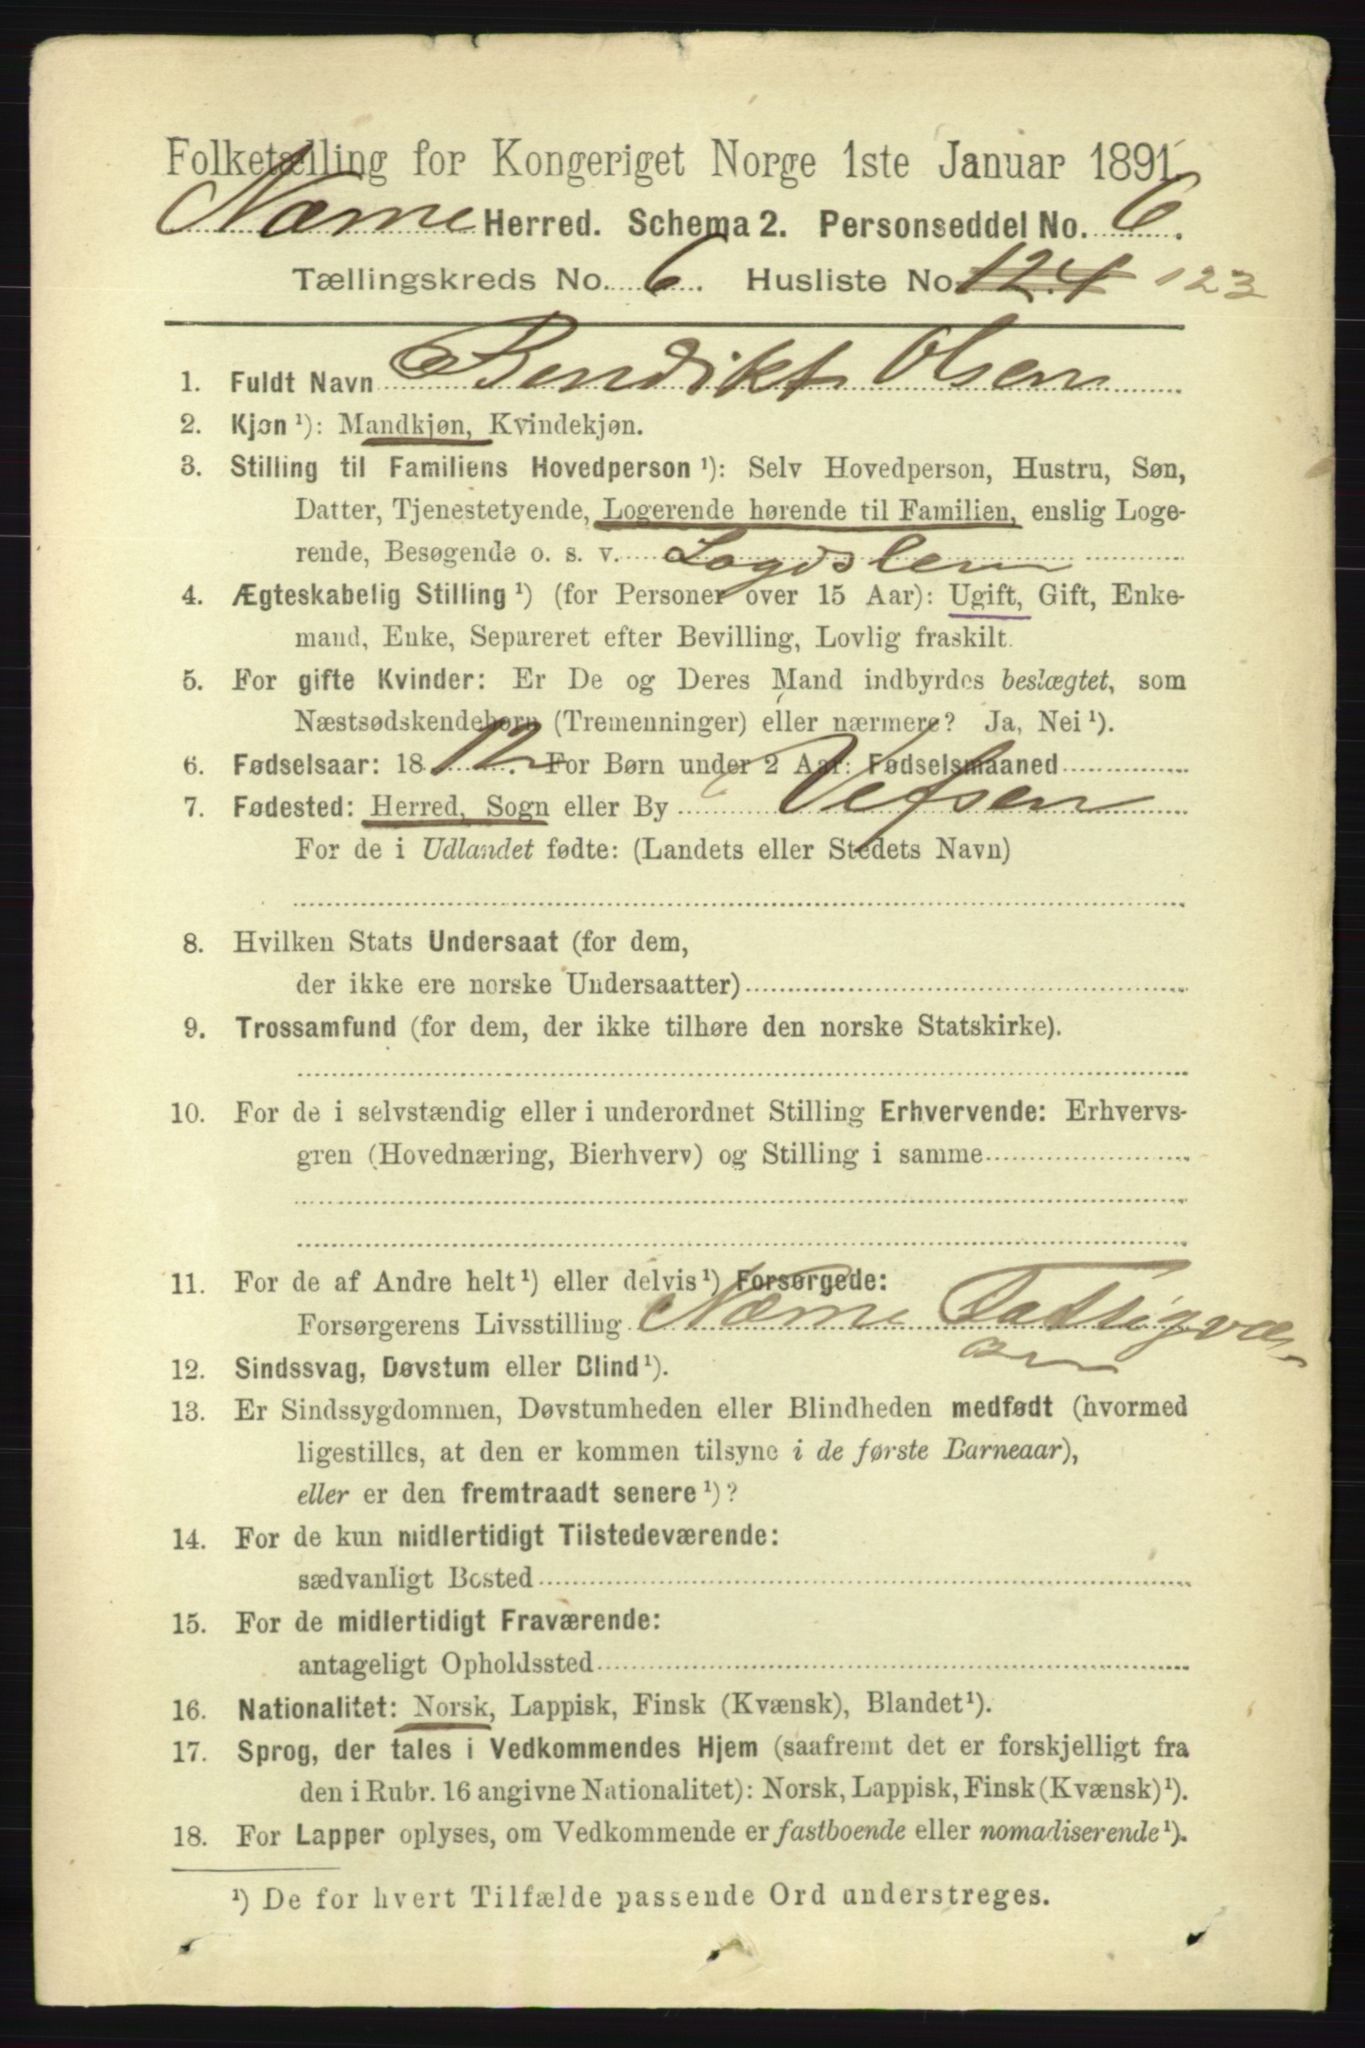 Folketælling for Kongeriget Norge 1ste Januar 1891.
Næsne Herred. Schema 2. Personseddel No. 6.
Tællingskreds No. 6. Husliste No. 124 123
1. Fuldt Navn Bendikt Olsen
2. Kjøn ¹): Mandkjøn, Kvindekjøn.
3. Stilling til Familiens Hovedperson ¹): Selv Hovedperson, Hustru, Søn,
Datter, Tjenestetyende, Logerende hørende til Familien, enslig Loge-
rende, Besøgende o. s. v. Lægdslem
4. Ægteskabelig Stilling ¹) (for Personer over 15 Aar): Ugift, Gift, Enke-
mand, Enke, Separeret efter Bevilling, Lovlig fraskilt.
5. For gifte Kvinder: Er De og Deres Mand indbyrdes beslægtet, som
Næstsødskendebørn (Tremenninger) eller nærmere? Ja, Nei ¹).
6. Fødselsaar: 1812. For Børn under 2 Aar: Fødselsmaaned
7. Fødested: Herred, Sogn eller By Vefsen
For de i Udlandet fødte: (Landets eller Stedets Navn)
8. Hvilken Stats Undersaat (for dem,
der ikke ere norske Undersaatter)
9. Trossamfund (for dem, der ikke tilhøre den norske Statskirke).
10. For de i selvstændig eller i underordnet Stilling Erhvervende: Erhvervs-
gren (Hovednæring, Bierhverv) og Stilling i samme
11. For de af Andre helt ¹) eller delvis ¹) Forsørgede:
Forsørgerens Livsstilling Næsne Fattigvæ-
sen
12. Sindssvag, Døvstum eller Blind ¹).
13. Er Sindssygdommen, Døvstumheden eller Blindheden medfødt (hvormed
ligestilles, at den er kommen tilsyne i de første Barneaar),
eller er den fremtraadt senere ¹)?
14. For de kun midlertidigt Tilstedeværende:
sædvanligt Bosted
15. For de midlertidigt Fraværende:
antageligt Opholdssted
16. Nationalitet: Norsk, Lappisk, Finsk (Kvænsk), Blandet ¹).
17. Sprog, der tales i Vedkommendes Hjem (saafremt det er forskjelligt fra
den i Rubr. 16 angivne Nationalitet): Norsk, Lappisk, Finsk (Kvænsk) ¹).
18. For Lapper oplyses, om Vedkommende er fastboende eller nomadiserende ¹).
¹) De for hvert Tilfælde passende Ord understreges.